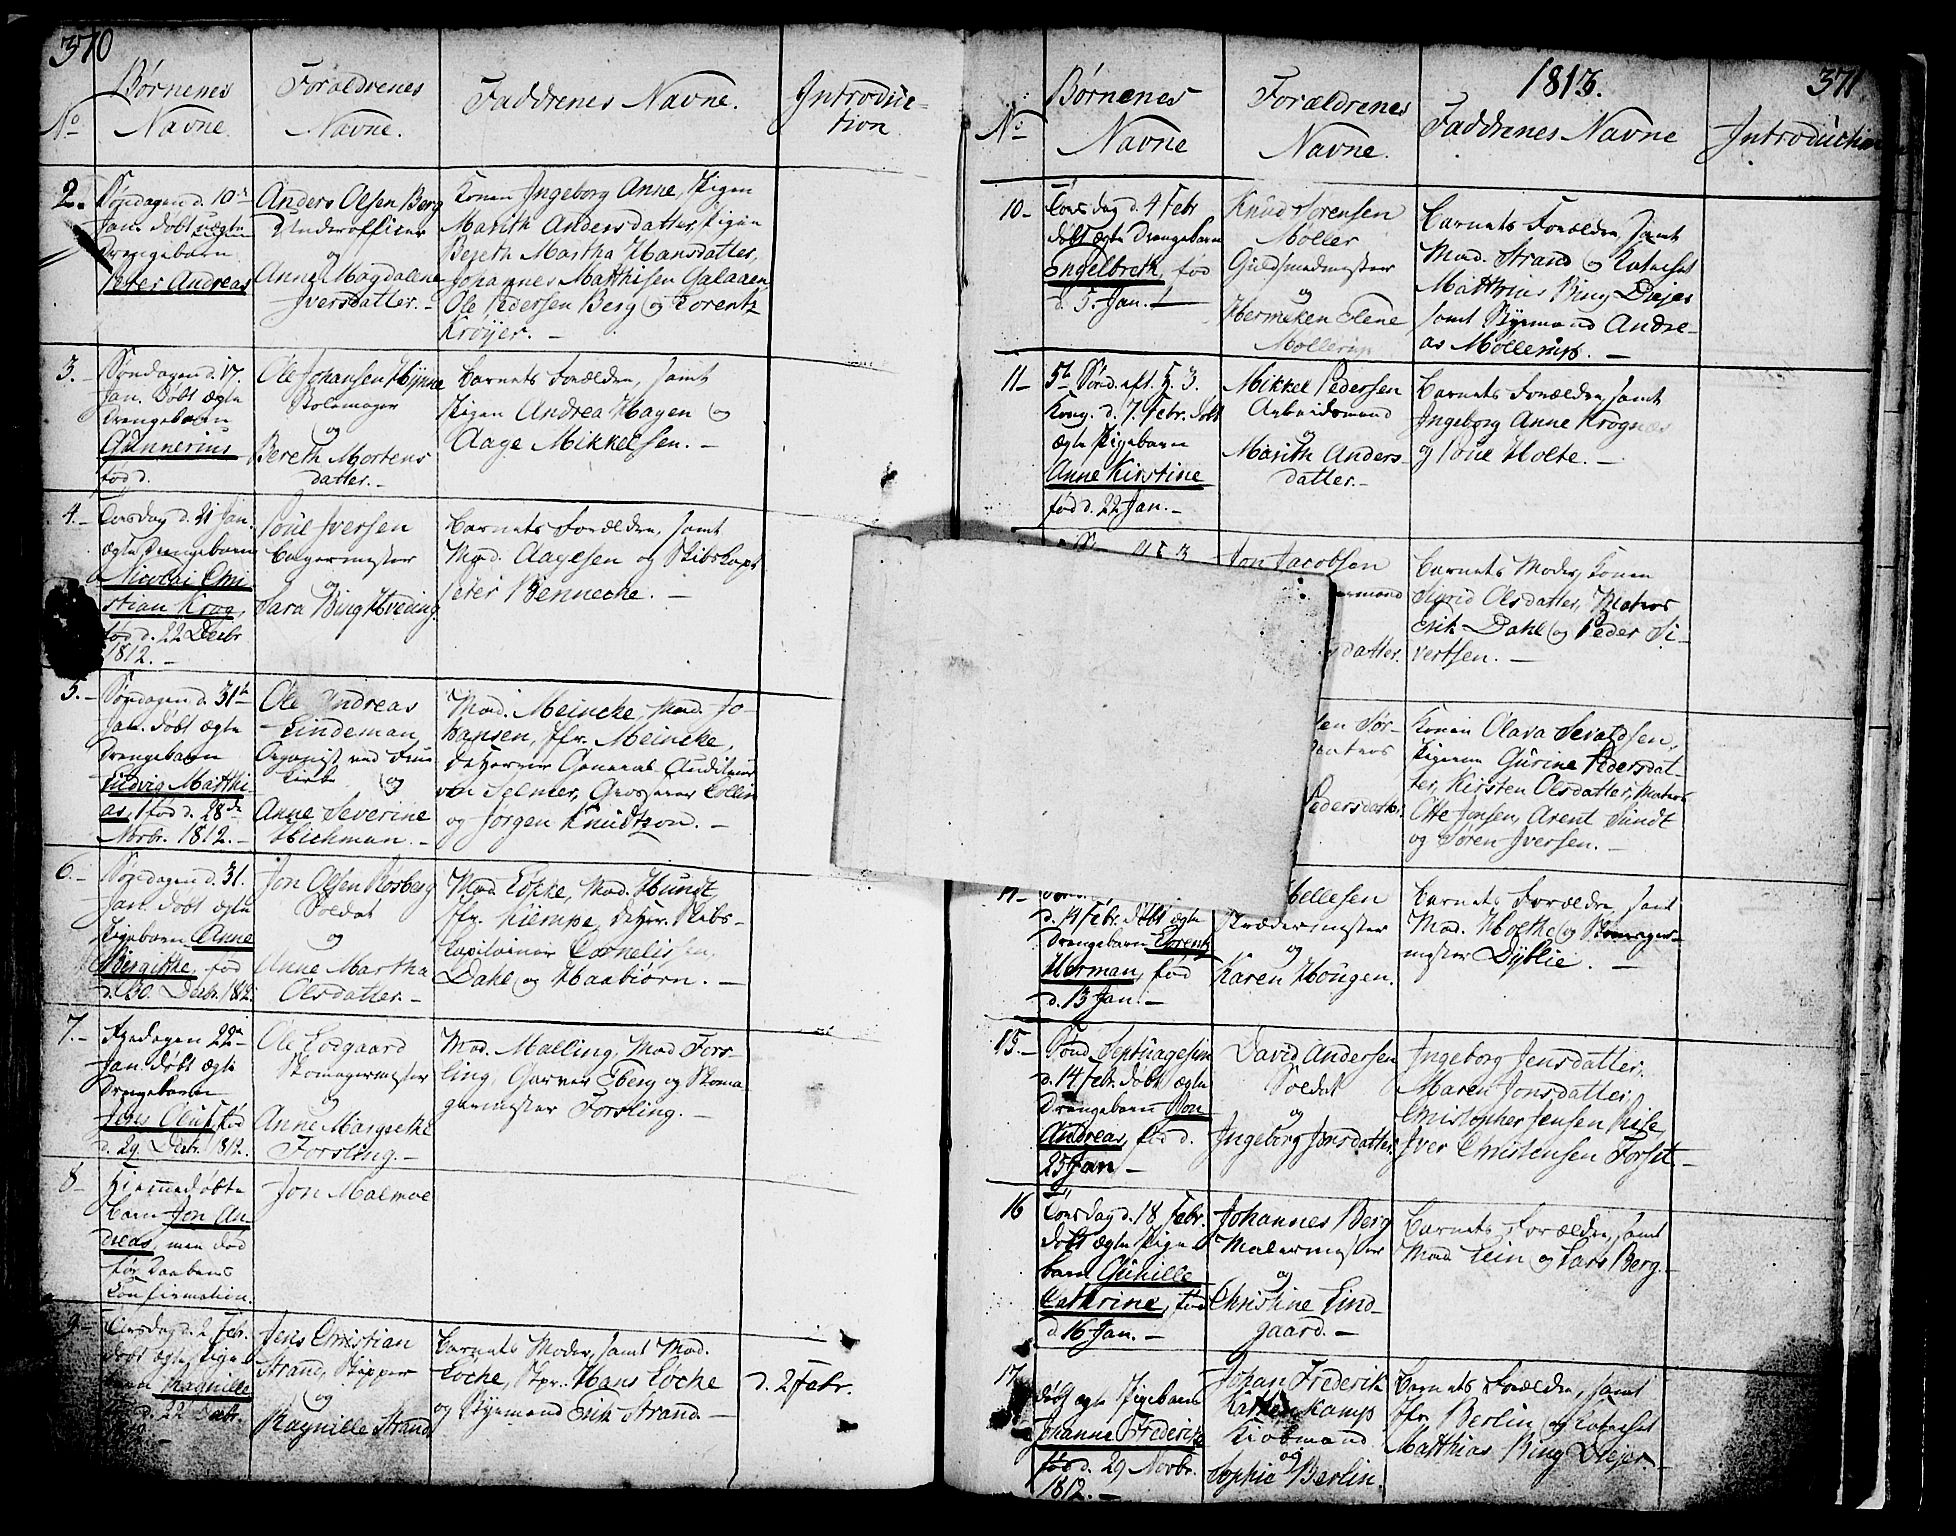 370
No
Børnenes
Navne.
Forældrenes
Navne.
Faddrenes Navne.
Introduc-
tion
2.
Søndagen d. 10de
Jan. døbt uægte
Drengebarn
Peter Andreas
Anders Olsen Berg
Underofficer
og
Anne Magdalene
Iversdatter. -
Konen Ingeborg Anne, Pigen
Marith Andersdatter, Pigen
Bereth Martha Hansdatter,
Johannes Matthisen Galaaen
Ole Pedersen Berg og Lorentz
Krøyer. -
3.-
Søndagen d. 17.
Jan. døbt ægte
Drengebarn
Gunnerius
fød d.
Ole Johansen Hynne
Stolemager
og
Bereth Mortens
datter. -
Barnets Forældre, samt
Pigen Andrea Hagen og
Aage Mikkelsen. -
4.-
Torsdag d. 21 Jan.
ægte Drengebarn
Nicolai Chri
stian Krog,
fød d. 22 Decbr
1812. -
Poul Iversen
Bagermester
og
Sara Bing Hveding.
Barnets Forældre, samt
Mad. Aagesen og Skibskapt
Peter Bennecke. -
5.-
Søndagen d. 31te
Jan. døbt ægte
Drengebarn
Ludvig Matthi-
as, fød d. 28de
Novbr. 1812. -
Ole Andreas
Lindeman,
Organist ved Frue
Kirke og
Anne Severine
Hickman. -
Mad. Meincke, Mad. Jo-
hansen, Jfr. Meincke,
de Herrer General-Auditeur
von Selmer, Grosserer Collin
og Jørgen Knudtzon. -
6.-
Søndagen d. 31.
Jan. døbt ægte
Pigebarn Anne
Birgitte, fød
d. 30. Decbr. 1812.
Jon Olsen Rosberg
Soldat
og
Anne Martha
Olsdatter. -
Mad Løkke, Mad. Hundt
Jfr. Kiempe, de Hrr. Skibs-
Capitainer Cornelissen
Dahl og Haabiørn. -
7.-
Fredagen 22de
Jan. døbt ægte
Drengebarn
Jens Oluf, fød
d. 29. Decbr. 1812.
Ole Lodgaard
Skomagermester
og
Anne Margrethe
Forsling. -
Mad. Malling, Mad Fors-
ling, Garver Eberg og Skoma
germester Forsling. -
8-
Hiemmedøbte
Barn Jon An-
dreas, men død
før Daabens
Confirmation.
Jon Malmoe
9-
Tirsdag d. 2 Febr.
døbt ægte Pige
barn Ragnille
fød d. 22 Decbr.
Jens Christian
Strand, Skipper
og
Ragnille Strand
Barnets Moder, samt Mad.
Løche, Skpr. Hans Løche
og Styrmand Erik Strand. -
d. 2 Febr.
1813.
371
No
Børnenes
Navne
Forældrenes
Navne.
Faddrenes Navne
Introduction
10-
Torsdag d. 4 Febr
døbt ægte Drengebarn
Engelbreth, fød
d. 5. Jan. -
Knud Sørensen
Møller
Guldsmedmester
og
Hermeken Elene
Møllerup
Barnets Forældre, samt
Mad. Strand og Kateket
Matthias Bing Drejer
samt Styrmand Andre-
as Møllerup. -
11-
5te Sønd. eft. H. 3.
Kong. d. 7. Febr. døbt
ægte Pigebarn
Anne Kirstine
fød d. 22 Jan. -
Mikkel Pedersen
Arbeidsmand
og
Marith Anders-
datter. -
Barnets Forældre, samt
Ingeborg Anne Krognes
og Poul Holte. -
Jon Jacobsen
datter.
Barnets Moder, Konen
Sigrid Olsdatter, Matros
Erik Dahl og Peder Si-
vertsen. -
Sør-
Matros
Pedersdatter
Konen Olava Sevaldsen,
Pigerne Gurine Pedersdat-
ter, Kirsten Olsdatter, Matros
Otte Jonsen, Arent Sundt
og Søren Iversen. -
d. 14 Febr. døbt ægte
Drengebarn Lorentz
Herman, fød
d. 13 Jan. -
Hellesen
Skrædermester
og
Karen Hougen.
Barnets Forældre, samt
Mad. Holthe og Skomager-
mester Dyblie. -
15.-
Sønd. Septuagesim
d. 14 Febr. døbt ægte
Drengebarn Jon
Andreas, fød d.
25 Jan -
David Andersen
Soldat
og
Ingeborg Jonsdatter.
Ingeborg Jensdatter.
Maren Jonsdatter,
Christopher Jensen Riise
Iver Christensen Forset. -
16
Torsdag d. 18 Febr.
døbt ægte Pige
barn Gunille
Cathrine, fød
d 16 Jan. -
Johannes Berg
Malermester
og
Christine Lind-
gaard. -
Barnets Forældre, samt
Mad Lein og Lars Berg. -
17
døbt ægte Pigebarn
Johanne Frederike
fød d. 29 Novbr.
1812. -
Johan Frederik
Kattenkamp
Kiøbmand
og
Sophie Berlin.
Barnets Forældre, samt
Jfr. Berlin, og Kateket
Matthias Bing Drejer. -